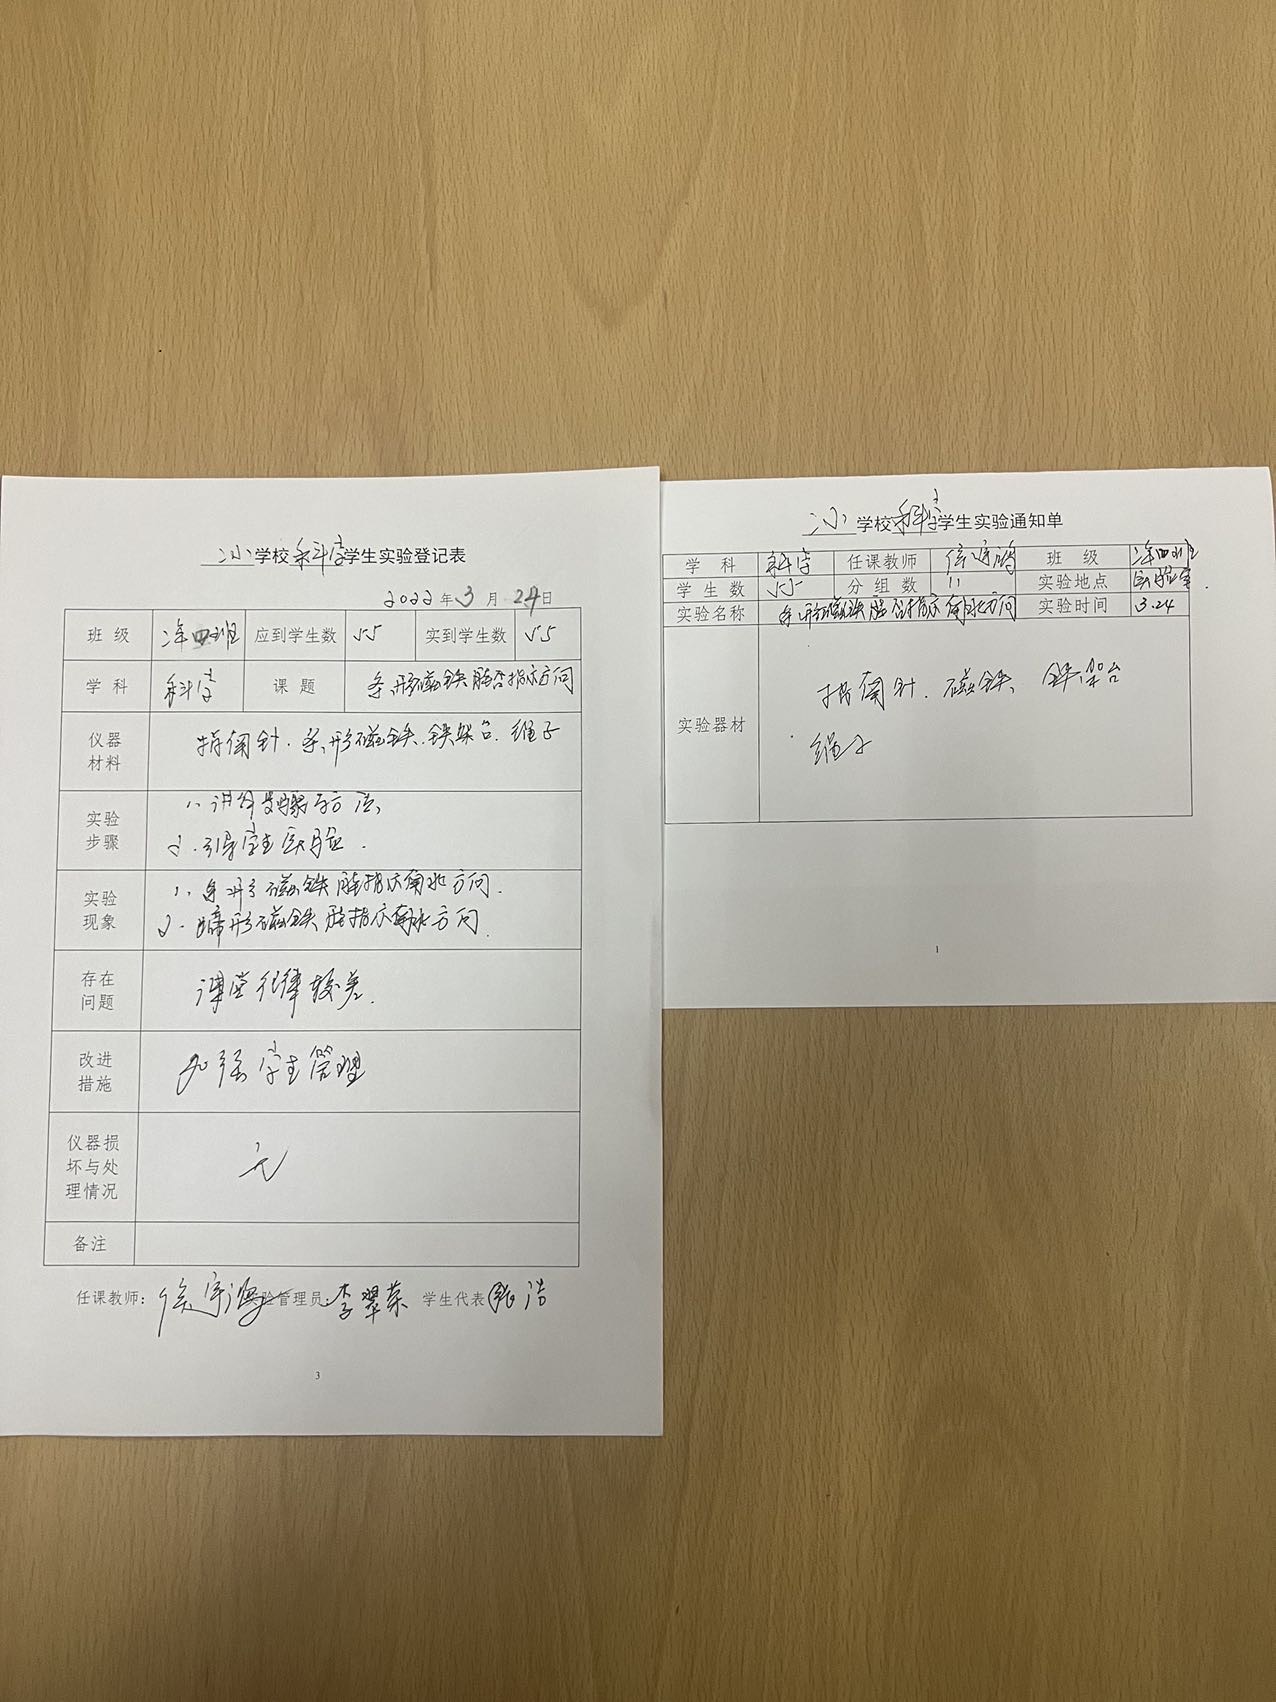 二小学校科学学生实验登记表
2022年3月24日
班级 二年四班 应到学生数 55 实到学生数 55
学科 科学 课题 条形磁铁能否指示方向
仪器材料 指南针、条形磁铁、铁架台、绳子
实验步骤 1、讲解步骤与方法、
2、引导学生实验.
实验现象 1、条形磁铁能指示南北方向.
2、蹄形磁铁能指示南北方向.
存在问题 课堂纪律较差.
改进措施 加强学生管理
仪器损坏与处理情况 无
备注
任课教师: 实验管理员: 李翠荣 学生代表 张浩
3
二小学校科学学生实验通知单
学科 科学 任课教师 班级 二年四班
学生数 55 分组数 11 实验地点 实验室.
实验名称 条形磁铁能否指示南北方向 实验时间 3.24
实验器材 指南针、磁铁、铁架台
绳子
1